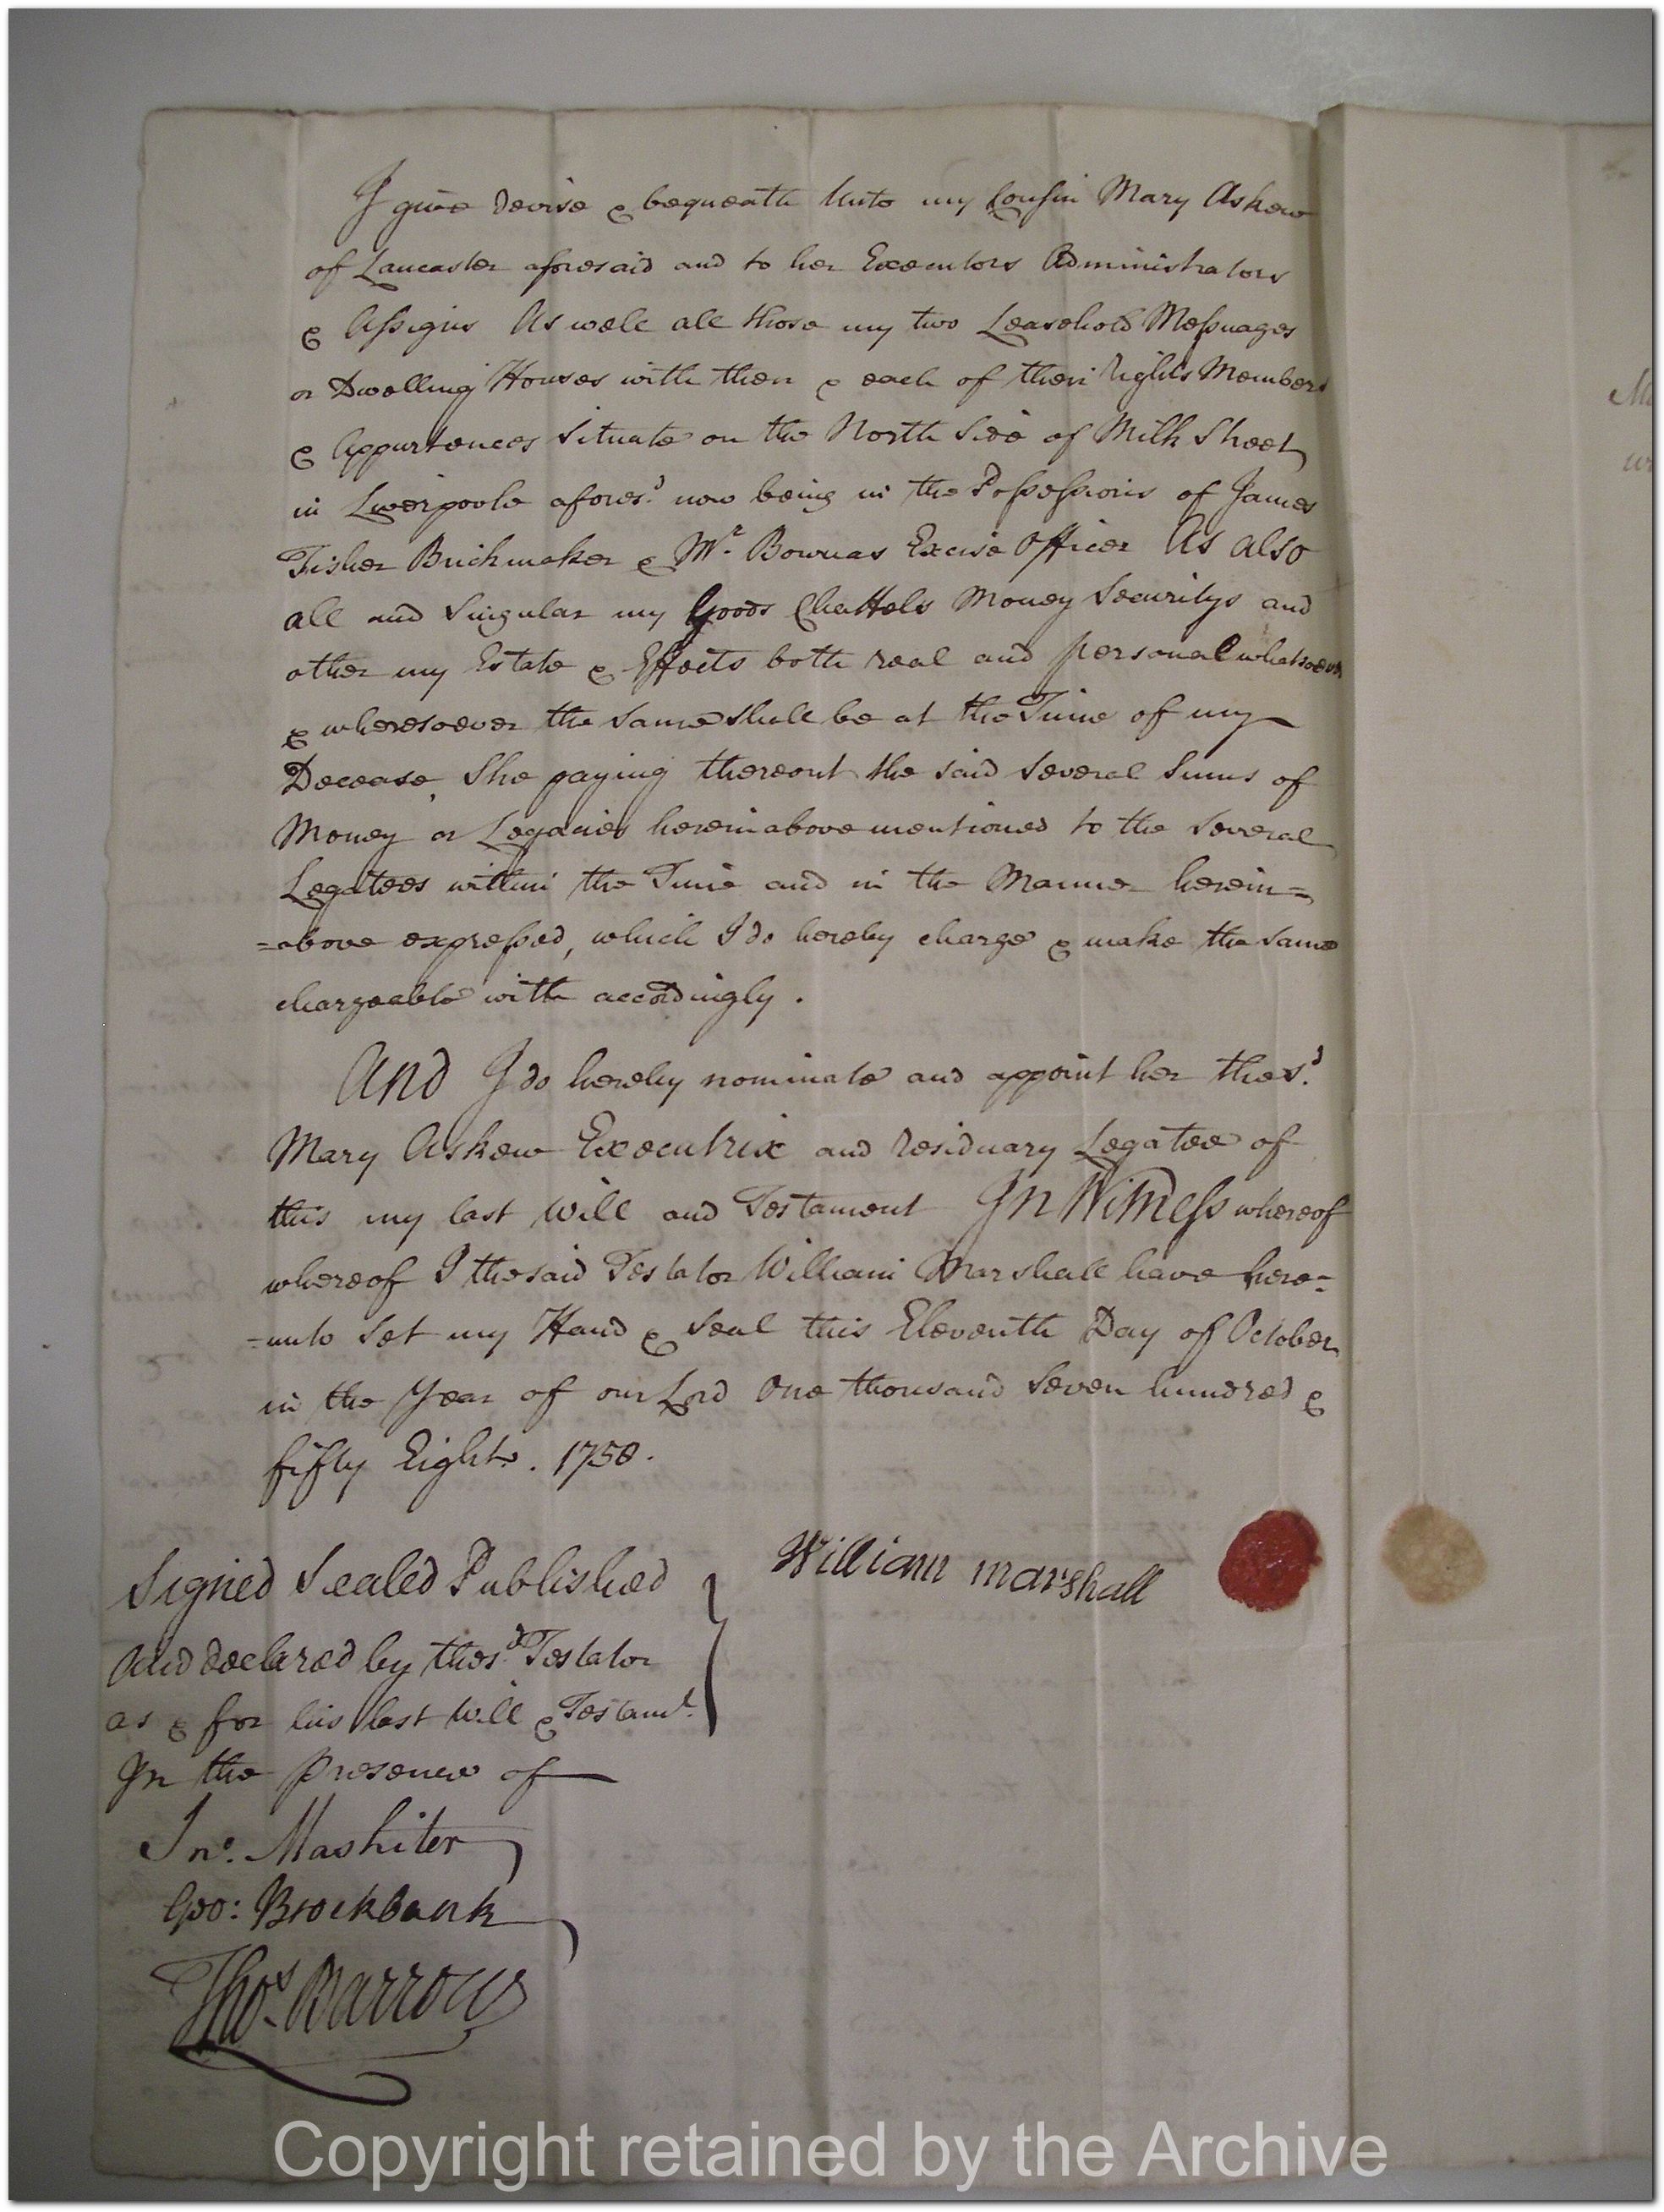 I give devise & bequeath Unto my Cousin Mary Askew
of Lancaster aforesaid and to her Executors Administrators
& Assigns As well all those my two Leasehold Messuages
or Dwelling Houses with their & each of their rights Members
& Appurtences Situate on the North Side of Milk Street
in Liverpoole afores.d now being in the Possessions of James
Fisher Brickmaker & Mr. Bownas Excise Officer As also
all and Singular my Goods Chattels Money Securitys and
other my Estate & Effects both real and personal whatsoever
& wheresoever the same shall be at the Time of my
Decease, She paying thereout the said several Sums of
Money or Legacies hereinabove mentioned to the several
Legatees within the Time and in the Manner herein=
=above expressed, which I do hereby charge & make the same
chargeable with accordingly.
And I do hereby nominate and appoint her the s.d
Mary Askew Executrix and residuary Legatee of
this my last Will and Testament In Witness whereof
whereof I the said Testator William Marshall have here=
=unto Set my Hand & Seal this Eleventh Day of October
in the Year of our Lord One thousand Seven hundred &
fifty Eight. 1758.
William marshall
Signed Sealed Published
And declared by the s.d Testator
as & for his last Will & Testam.t
In the presence of
Jno. Mashiter
Geo: Brockbank
Thos. Barrow
Copyright retained by the Archive